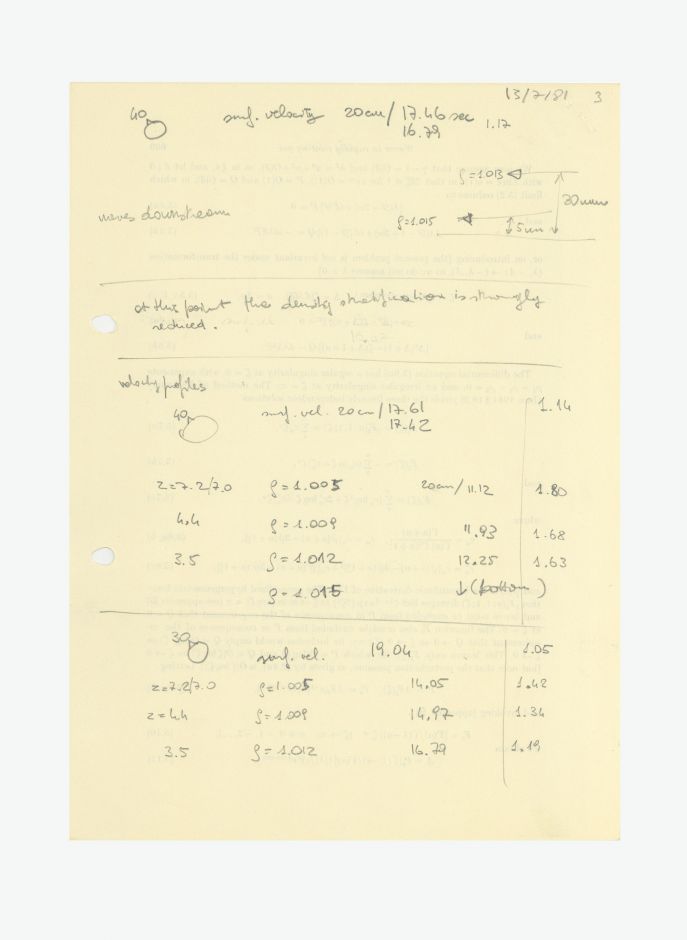 13/7/81 3
40 surf. velocity 20cm/ 17.46 sec 1.17
16.79
ρ=1.013
20mm
moves downstream ρ=1.015 5mm
at this point the density stratification is strongly
reduced.
velocity profiles
40 surf. vel. 20cm/17.61 1.14
17.42
z=7.2/7.0 ρ=1.005 20cm/11.12 1.80
4.4 ρ=1.009 11.93 1.68
3.5 ρ=1.012 12.25 1.63
ρ=1.015 ↓(bottom)
30 surf. vel. 19.04 1.05
z=7.2/7.0 ρ=1.005 14.05 1.42
z=4.4 ρ=1.009 14.97 1.34
3.5 ρ=1.012 16.79 1.19